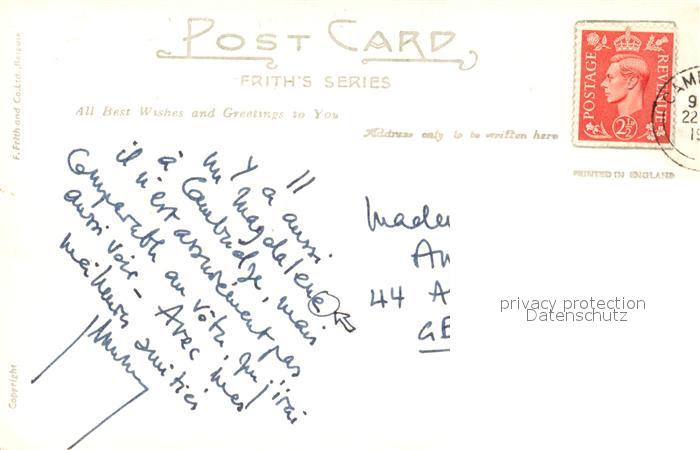 POST CARD
FRITH'S SERIES
All Best Wishes and Greetings to You
Address only to be written here
POSTAGE
REVENUE
2½
CAMB
9
22
19
PRINTED IN ENGLAND
F. Frith and Co., Ltd., Reigate
Copyright
Il
y a aussi
un Magdalene
à Cambridge, mais
il n'est assurément pas
comparable au vôtre, que j'irai
aussi voir - Avec mes
meilleures amitiés
Madem
An
44 A
GE
privacy protection
Datenschutz